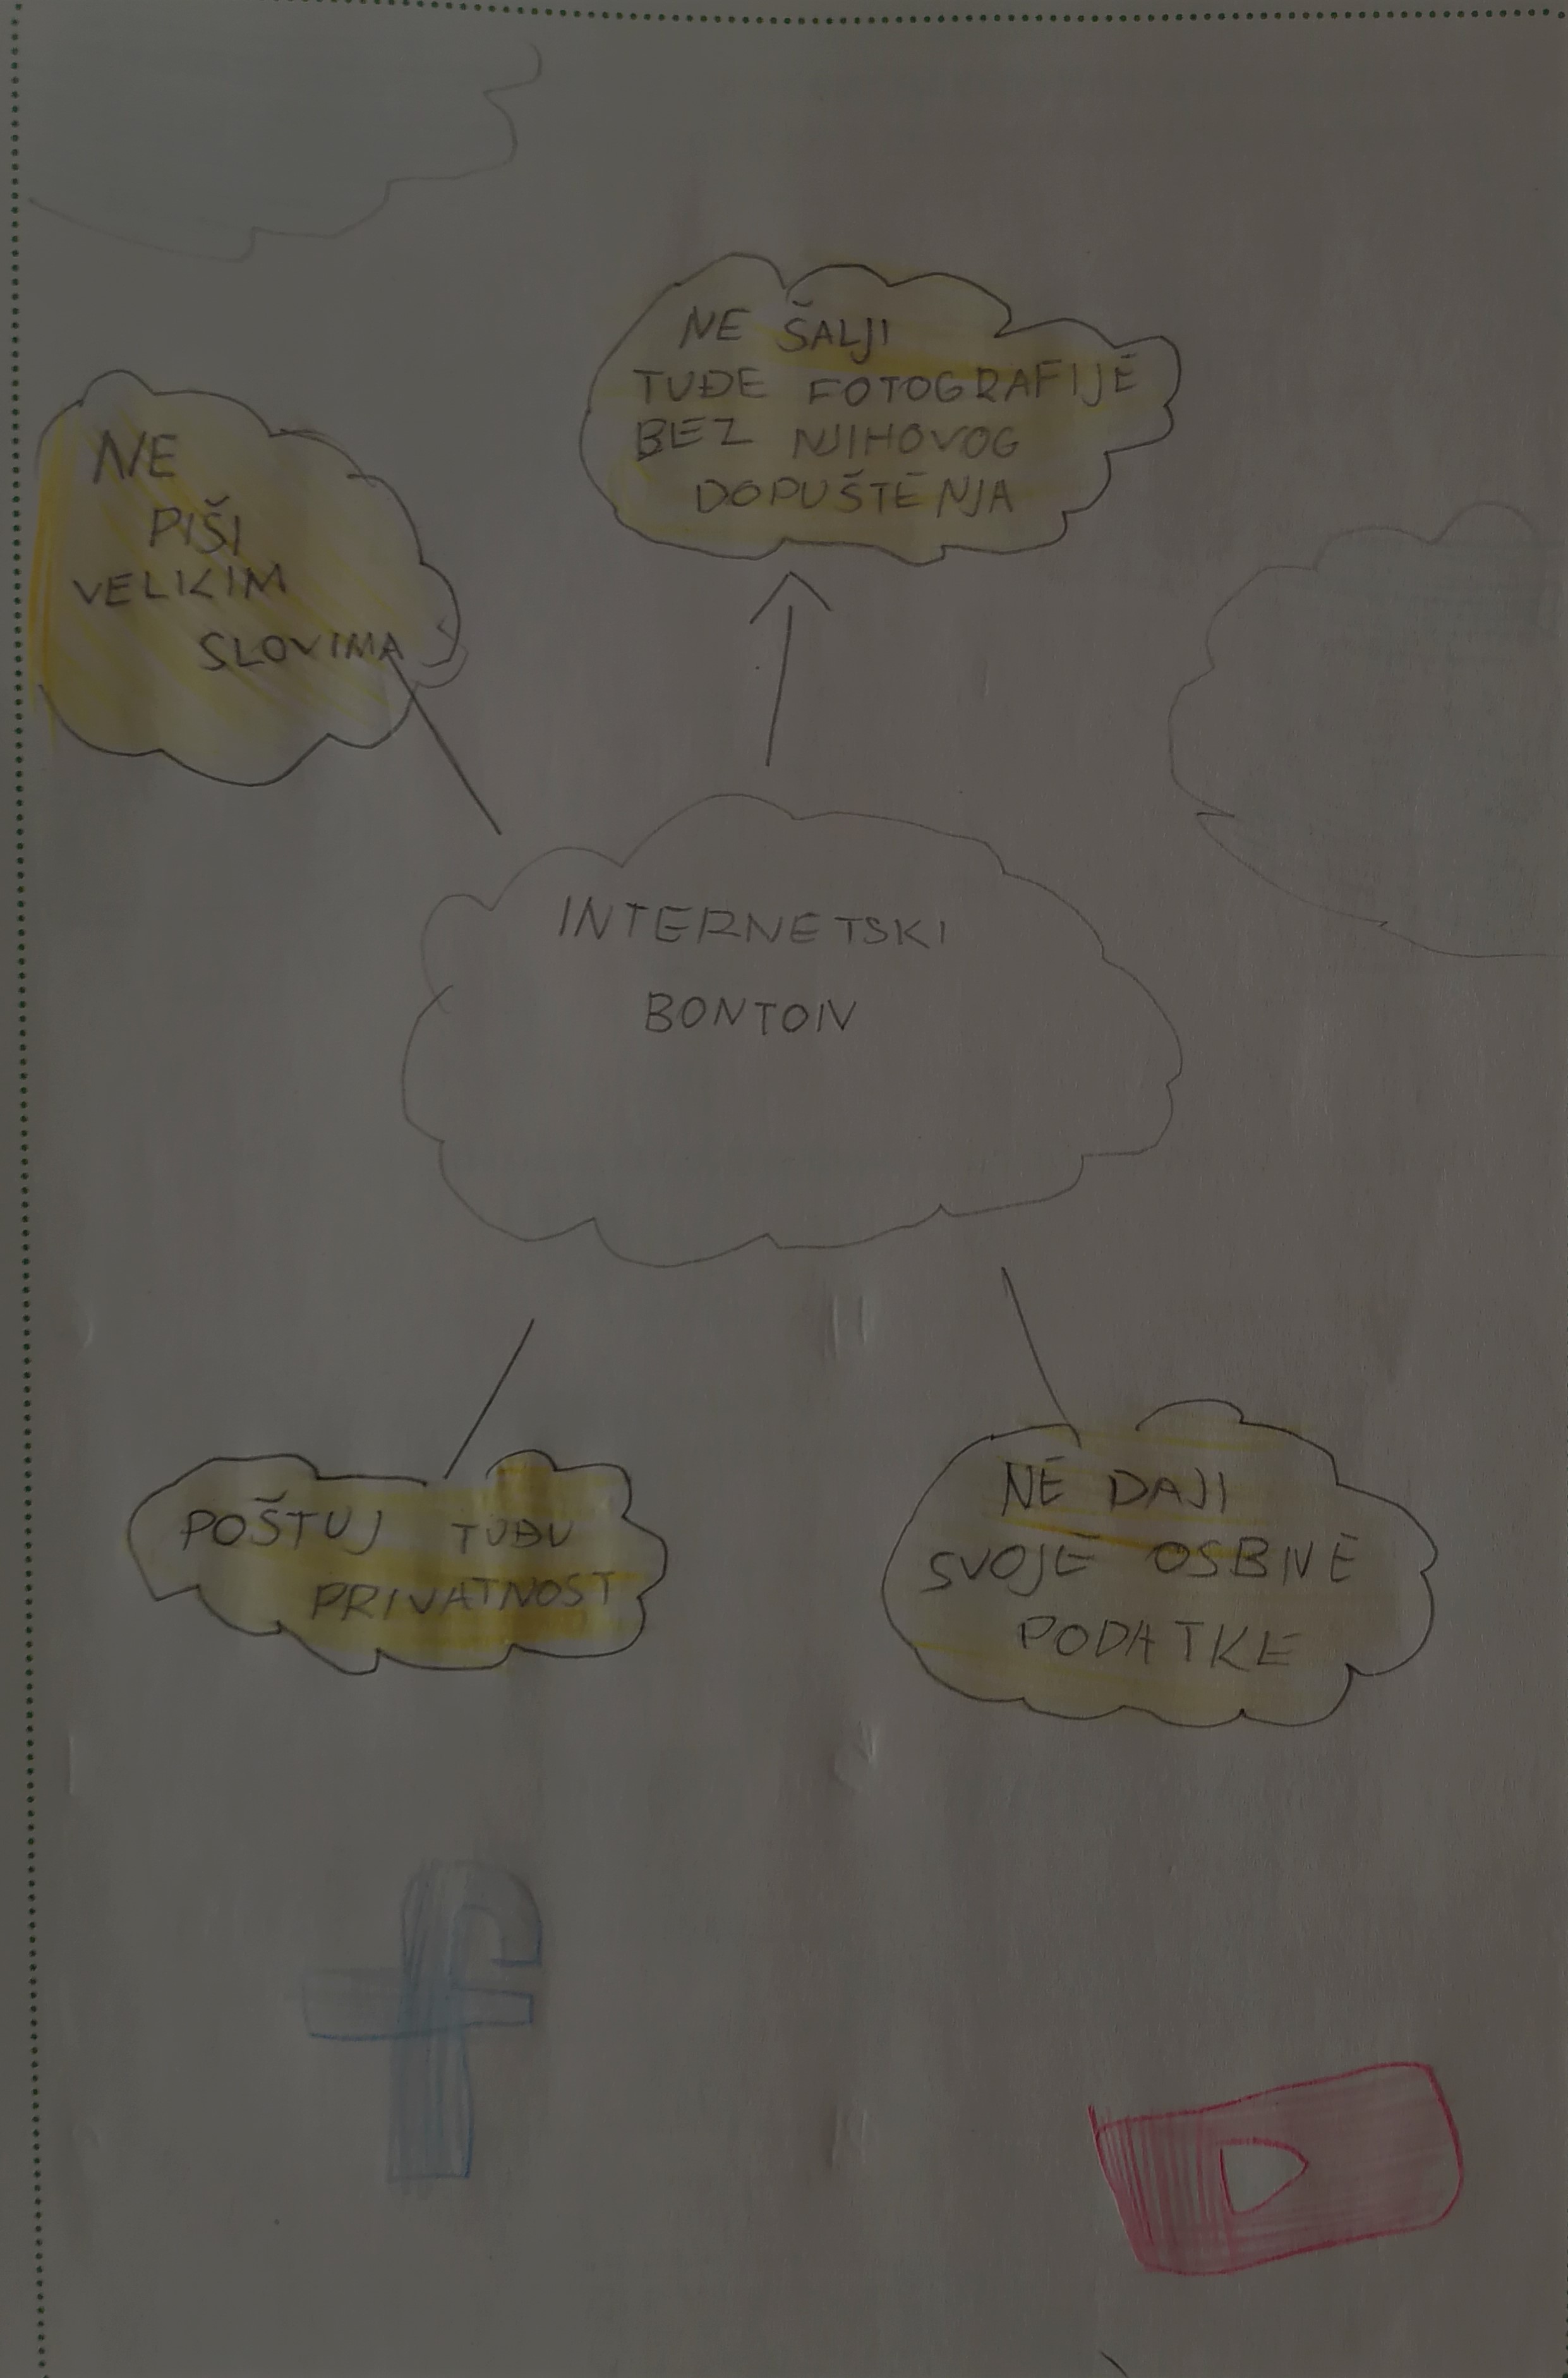 NE ŠALJI
TUĐE FOTOGRAFIJE
BEZ NJIHOVOG
DOPUŠTENJA
NE
PIŠI
VELIKIM
SLOVIMA
INTERNETSKI
BONTON
POŠTUJ TUĐU
PRIVATNOST
NE DAJI
SVOJE OSBNE
PODATKE